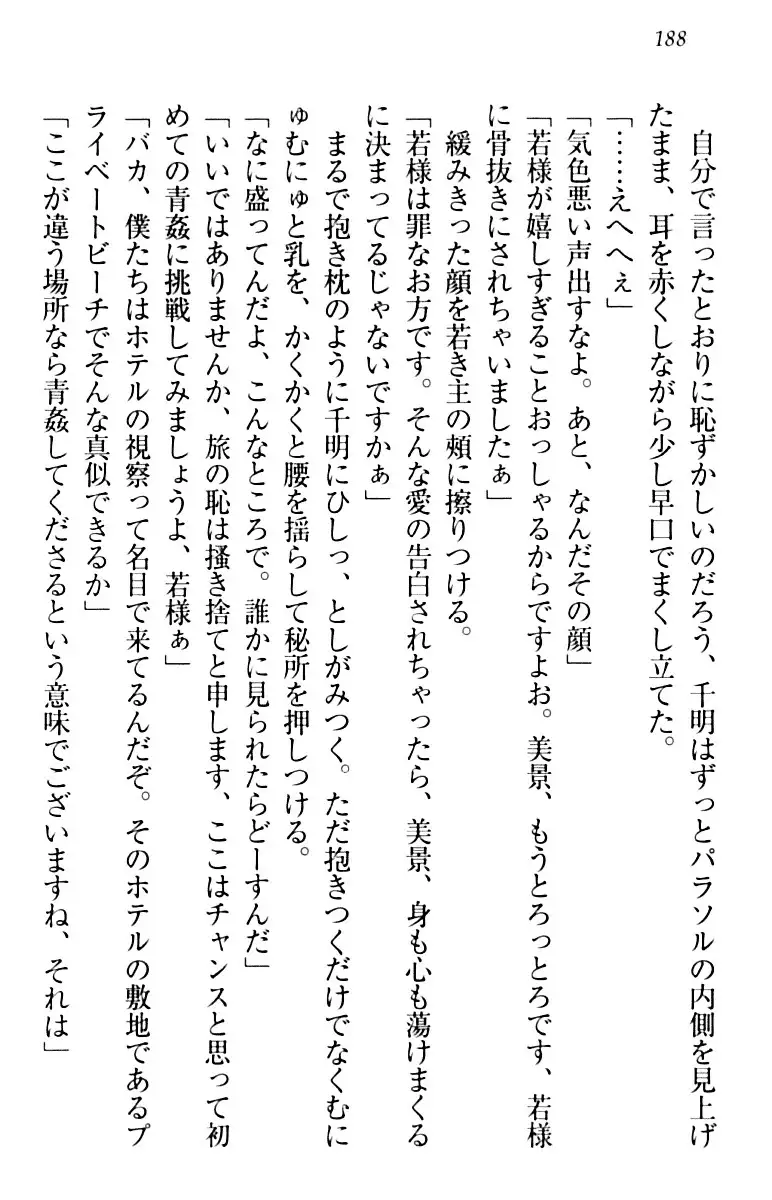 188
自分で言ったとおりに恥ずかしいのだろう、千明はずっとパラソルの内側を見上げ
たまま、耳を赤くしながら少し早口でまくし立てた。
「……えへへぇ」
「気色悪い声出すなよ。あと、なんだその顔」
「若様が嬉しすぎることおっしゃるからですよお。美景、もうとろっとろです、若様
に骨抜きにされちゃいましたぁ」
緩みきった顔を若き主の頬に擦りつける。
「若様は罪なお方です。そんな愛の告白されちゃったら、美景、身も心も蕩けまくる
に決まってるじゃないですかぁ」
まるで抱き枕のように千明にひしっ、としがみつく。ただ抱きつくだけでなくむに
ゅむにゅと乳を、かくかくと腰を揺らして秘所を押しつける。
「なに盛ってんだよ、こんなところで。誰かに見られたらどーすんだ」
「いいではありませんか、旅の恥は掻き捨てと申します、ここはチャンスと思って初
めての青姦に挑戦してみましょうよ、若様ぁ」
「バカ、僕たちはホテルの視察って名目で来てるんだぞ。そのホテルの敷地であるプ
ライベートビーチでそんな真似できるか」
「ここが違う場所なら青姦してくださるという意味でございますね、それは」